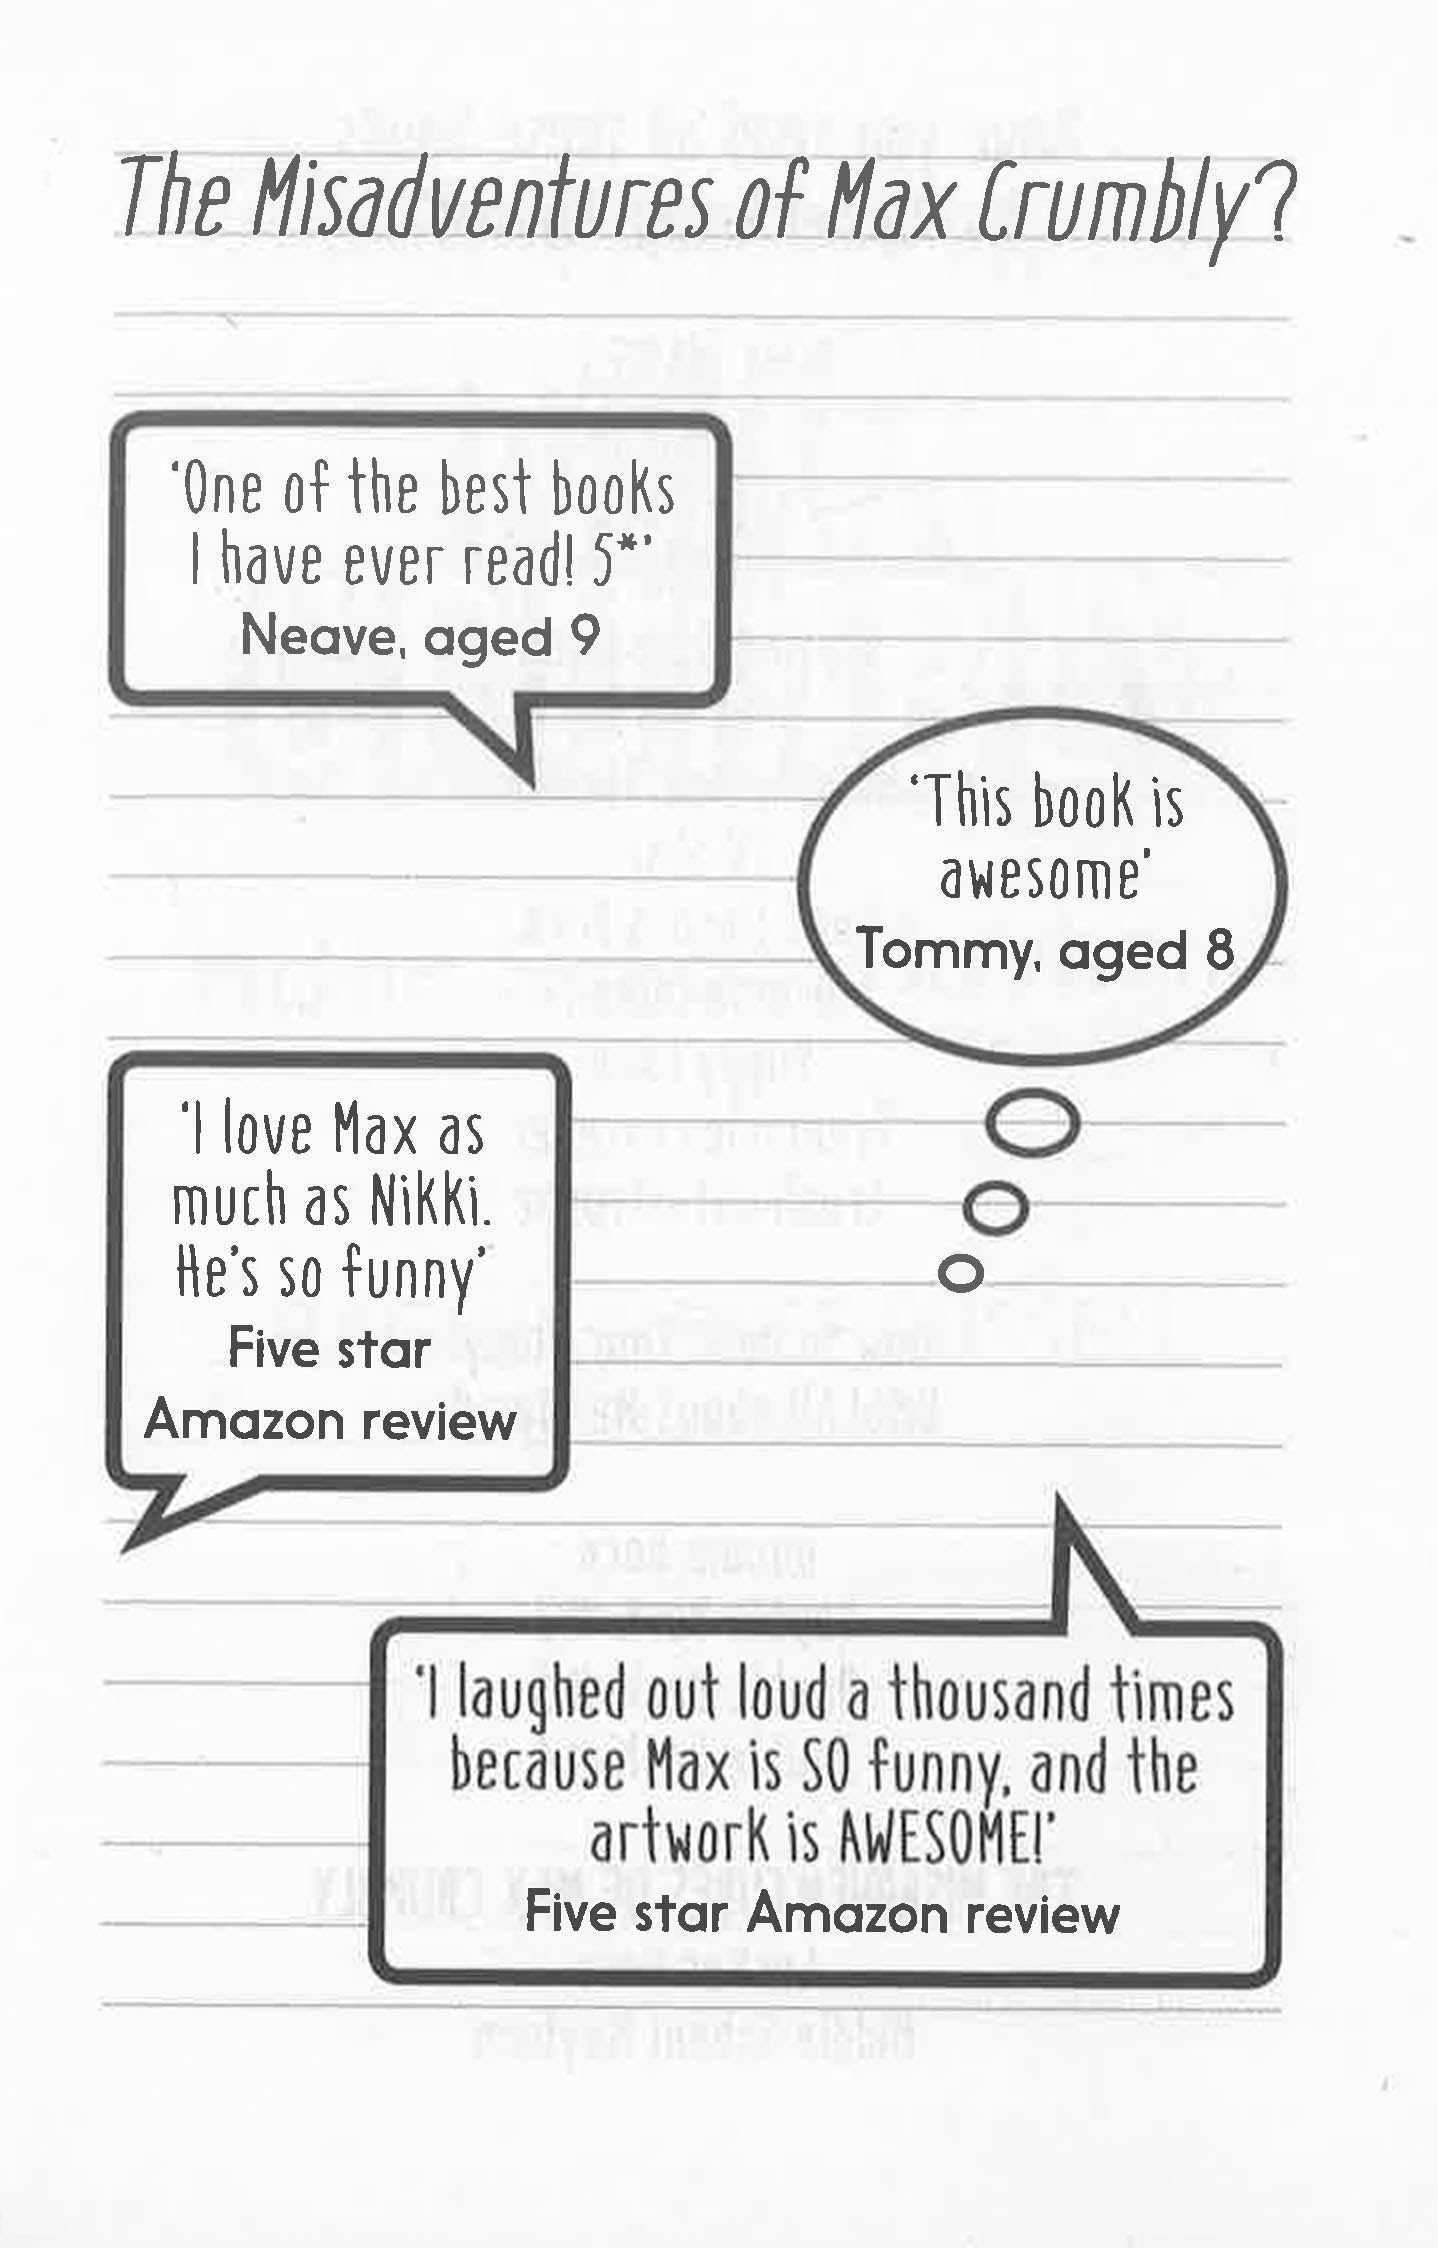 The Misadventures of Max Crumbly?
‘One of the best books
I have ever read! 5*’
Neave, aged 9
‘This book is
awesome’
Tommy, aged 8
‘I love Max as
much as Nikki.
He’s so funny’
Five star
Amazon review
‘I laughed out loud a thousand times
because Max is SO funny, and the
artwork is AWESOME!’
Five star Amazon review